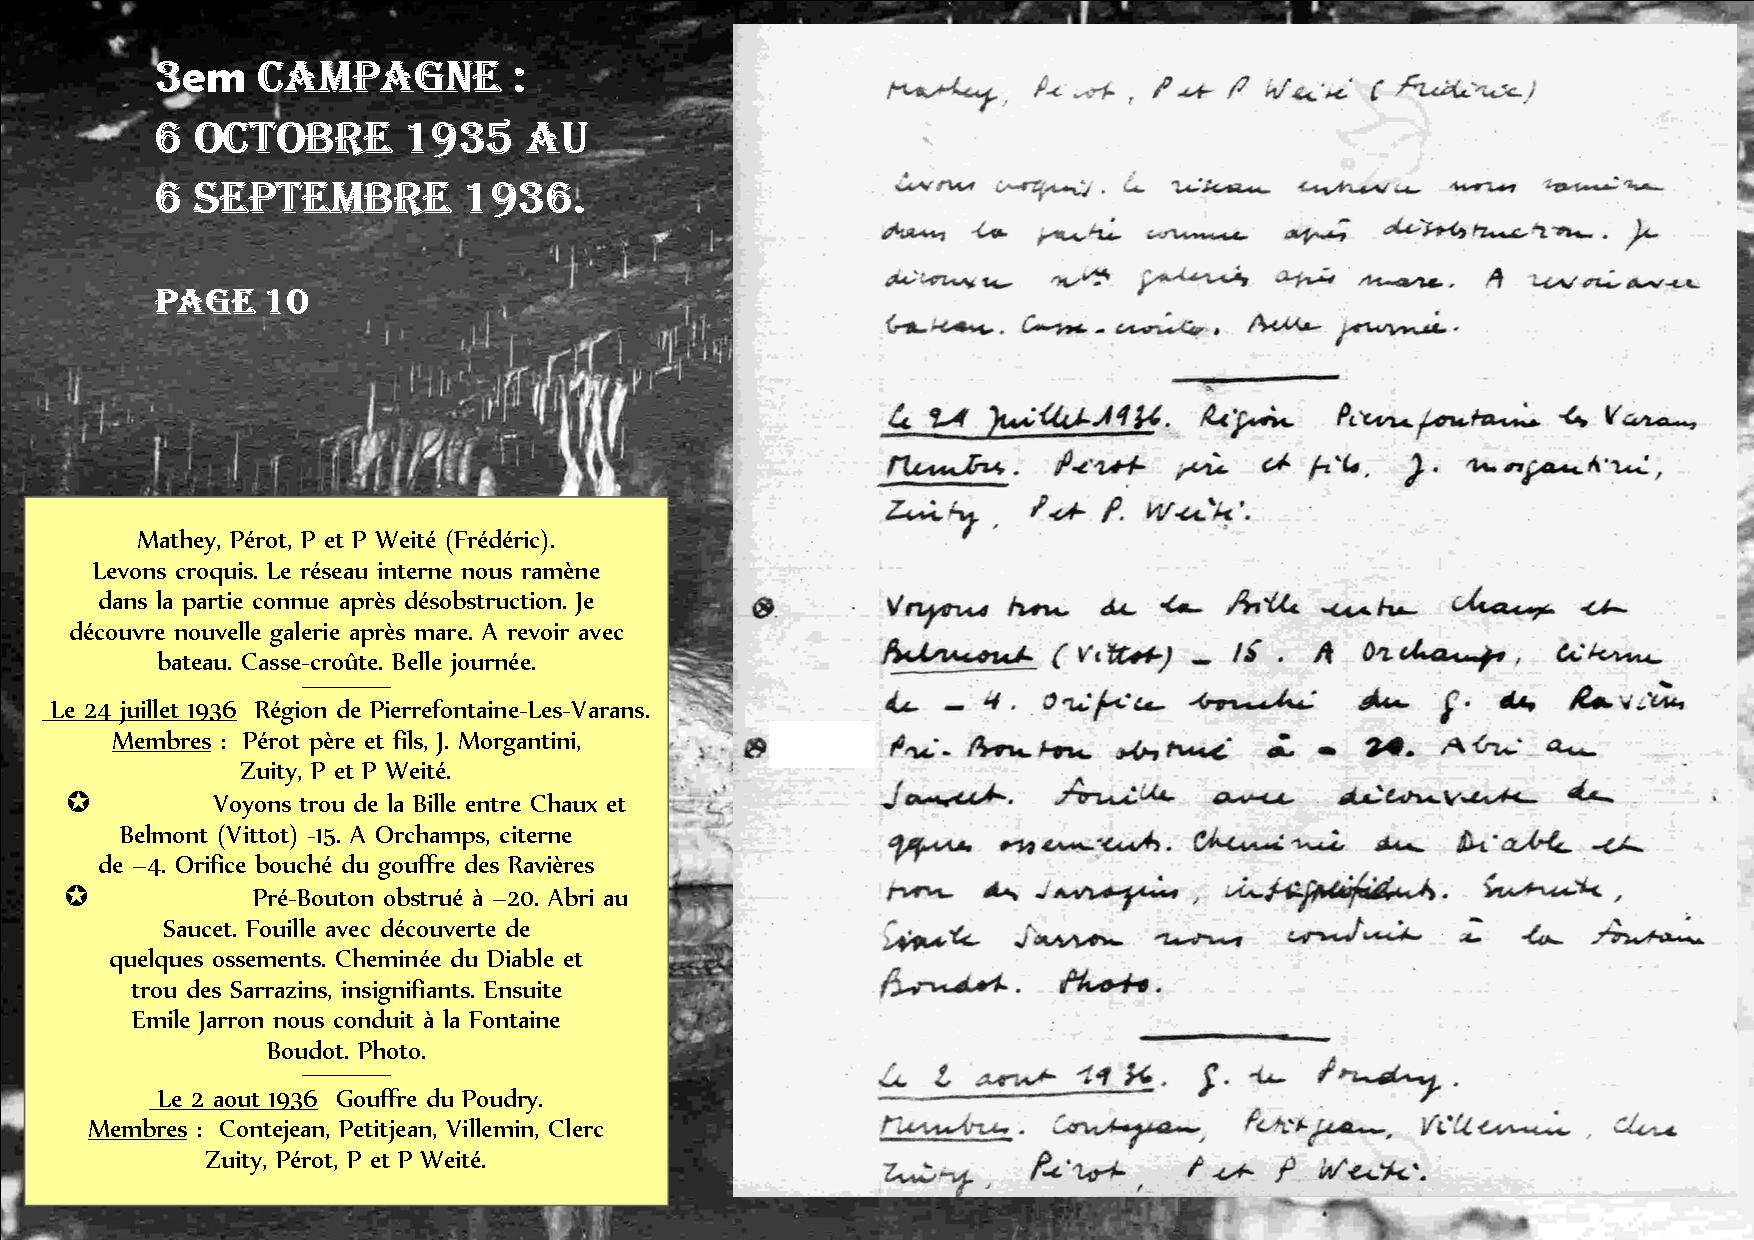 3em CAMPAGNE :
6 OCTOBRE 1935 AU
6 SEPTEMBRE 1936.
PAGE 10
Mathey, Pérot, P et P Weité (Frédéric).
Levons croquis. Le réseau interne nous ramène
dans la partie connue après désobstruction. Je
découvre nouvelle galerie après mare. A revoir avec
bateau. Casse-croûte. Belle journée.
Le 24 juillet 1936 Région de Pierrefontaine-Les-Varans.
Membres : Pérot père et fils, J. Morgantini,
Zuity, P et P Weité.
✪ Voyons trou de la Bille entre Chaux et
Belmont (Vittot) -15. A Orchamps, citerne
de –4. Orifice bouché du gouffre des Ravières
✪ Pré-Bouton obstrué à –20. Abri au
Saucet. Fouille avec découverte de
quelques ossements. Cheminée du Diable et
trou des Sarrazins, insignifiants. Ensuite
Emile Jarron nous conduit à la Fontaine
Boudot. Photo.
Le 2 aout 1936 Gouffre du Poudry.
Membres : Contejean, Petitjean, Villemin, Clerc
Zuity, Pérot, P et P Weité.
Mathey, Pérot, P et P Weité (Frédéric)
Levons croquis. Le réseau interne nous ramène
dans la partie connue après désobstruction. Je
découvre nlles galeries après mare. A revoir avec
bateau. Casse-croûte. Belle journée.
Le 24 Juillet 1936. Région Pierrefontaine les Varans
Membres. Pérot père et fils, J. Morgantini,
Zuity, P et P. Weité.
Voyons trou de la Bille entre Chaux et
Belmont (Vittot) – 15. A Orchamps, citerne
de – 4. Orifice bouché du g. des Ravières
Pré-Bouton obstrué à – 20. Abri au
Saucet. Fouille avec découverte de
qques ossements. Cheminée du Diable et
trou des Sarrazins, insignifiants. Ensuite,
Emile Jarron nous conduit à la Fontaine
Boudot. Photo.
Le 2 aout 1936. g. de Poudry.
Membres. Contejean, Petitjean, Villemin, Clerc
Zuity, Pérot, P et P Weité.